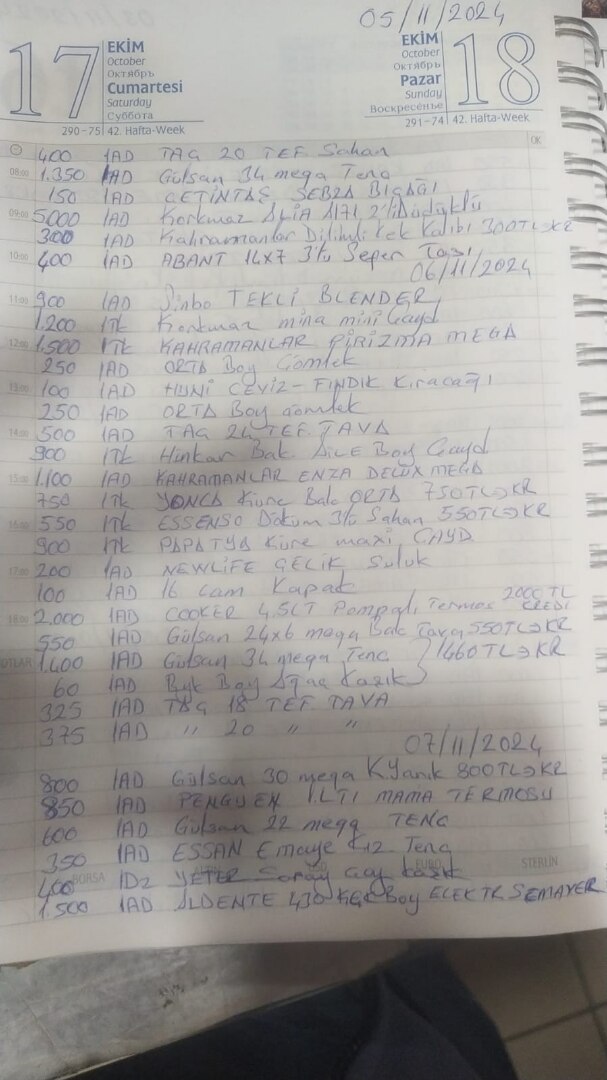 05/11/2024
17 EKİM
October
Октябрь
Cumartesi
Saturday
Суббота
290-75 42. Hafta-Week
EKİM 18
October
Октябрь
Pazar
Sunday
Воскресенье
291-74 42. Hafta-Week
OK
400 1AD TAG 20 TEF Sahan
08:00 1.350 1AD Gülsan 34 mega Tenc
150 1AD ÇETİNTAŞ SEBZE BIÇAĞI
09:00 5.000 1AD Korkmaz A171 2'li Düdüklü
300 1AD Kahramanlar Dilimli Kek Kalıbı 300TL KR
10:00 400 1AD ABANT 14x7 3'lü Sefer Tası
06/11/2024
11:00 900 1AD Sinbo TEKLİ BLENDER
1.200 1Tk Korkmaz mina mini Çayd
12:00 1.500 1Tk KAHRAMANLAR PİRİZMA MEGA
250 1AD ORTA Boy Gömlek
13:00 100 1AD HUNİ CEVİZ-FINDIK Kıracağı
250 1AD ORTA Boy Gömlek
14:00 500 1AD TAG 24 TEF TAVA
900 1Tk Hünkar Bak AİLE Boy Çayd
15:00 1.100 1AD KAHRAMANLAR ENZA DELÜX MEGA
750 1Tk YONCA Küre Bak ORTA 750TL KR
16:00 550 1Tk ESSENSO Döküm 3'lü Sahan 550TL KR
900 1Tk PAPATYA Küre maxi ÇAYD
17:00 200 1AD NEWLİFE ÇELİK Suluk
100 1AD 16 cam Kapak
18:00 2.000 1AD COOKER 4,5LT Pompalı Termos 2000 TL KREDİ
550 1AD Gülsan 24x6 mega Bak Tava 550TL KR
NOTLAR 1.400 1AD Gülsan 34 mega Tenc
1460TL KR
60 1AD Byk Boy Ağaç Kaşık
325 1AD TAG 18 TEF TAVA
375 1AD " 20 " "
07/11/2024
800 1AD Gülsan 30 mega K.Yanık 800TL KR
850 1AD PENGUEN 1.LTİ MAMA TERMOSU
600 1AD Gülsan 22 mega TENC
350 1AD ESSAN Emaye Tenc
BORSA USD EURO STERLİN
400 1Dz YETER Saray Çay Kaşık
1.500 1AD ALDENTE 430 Boy ELEKTR SEMAVER